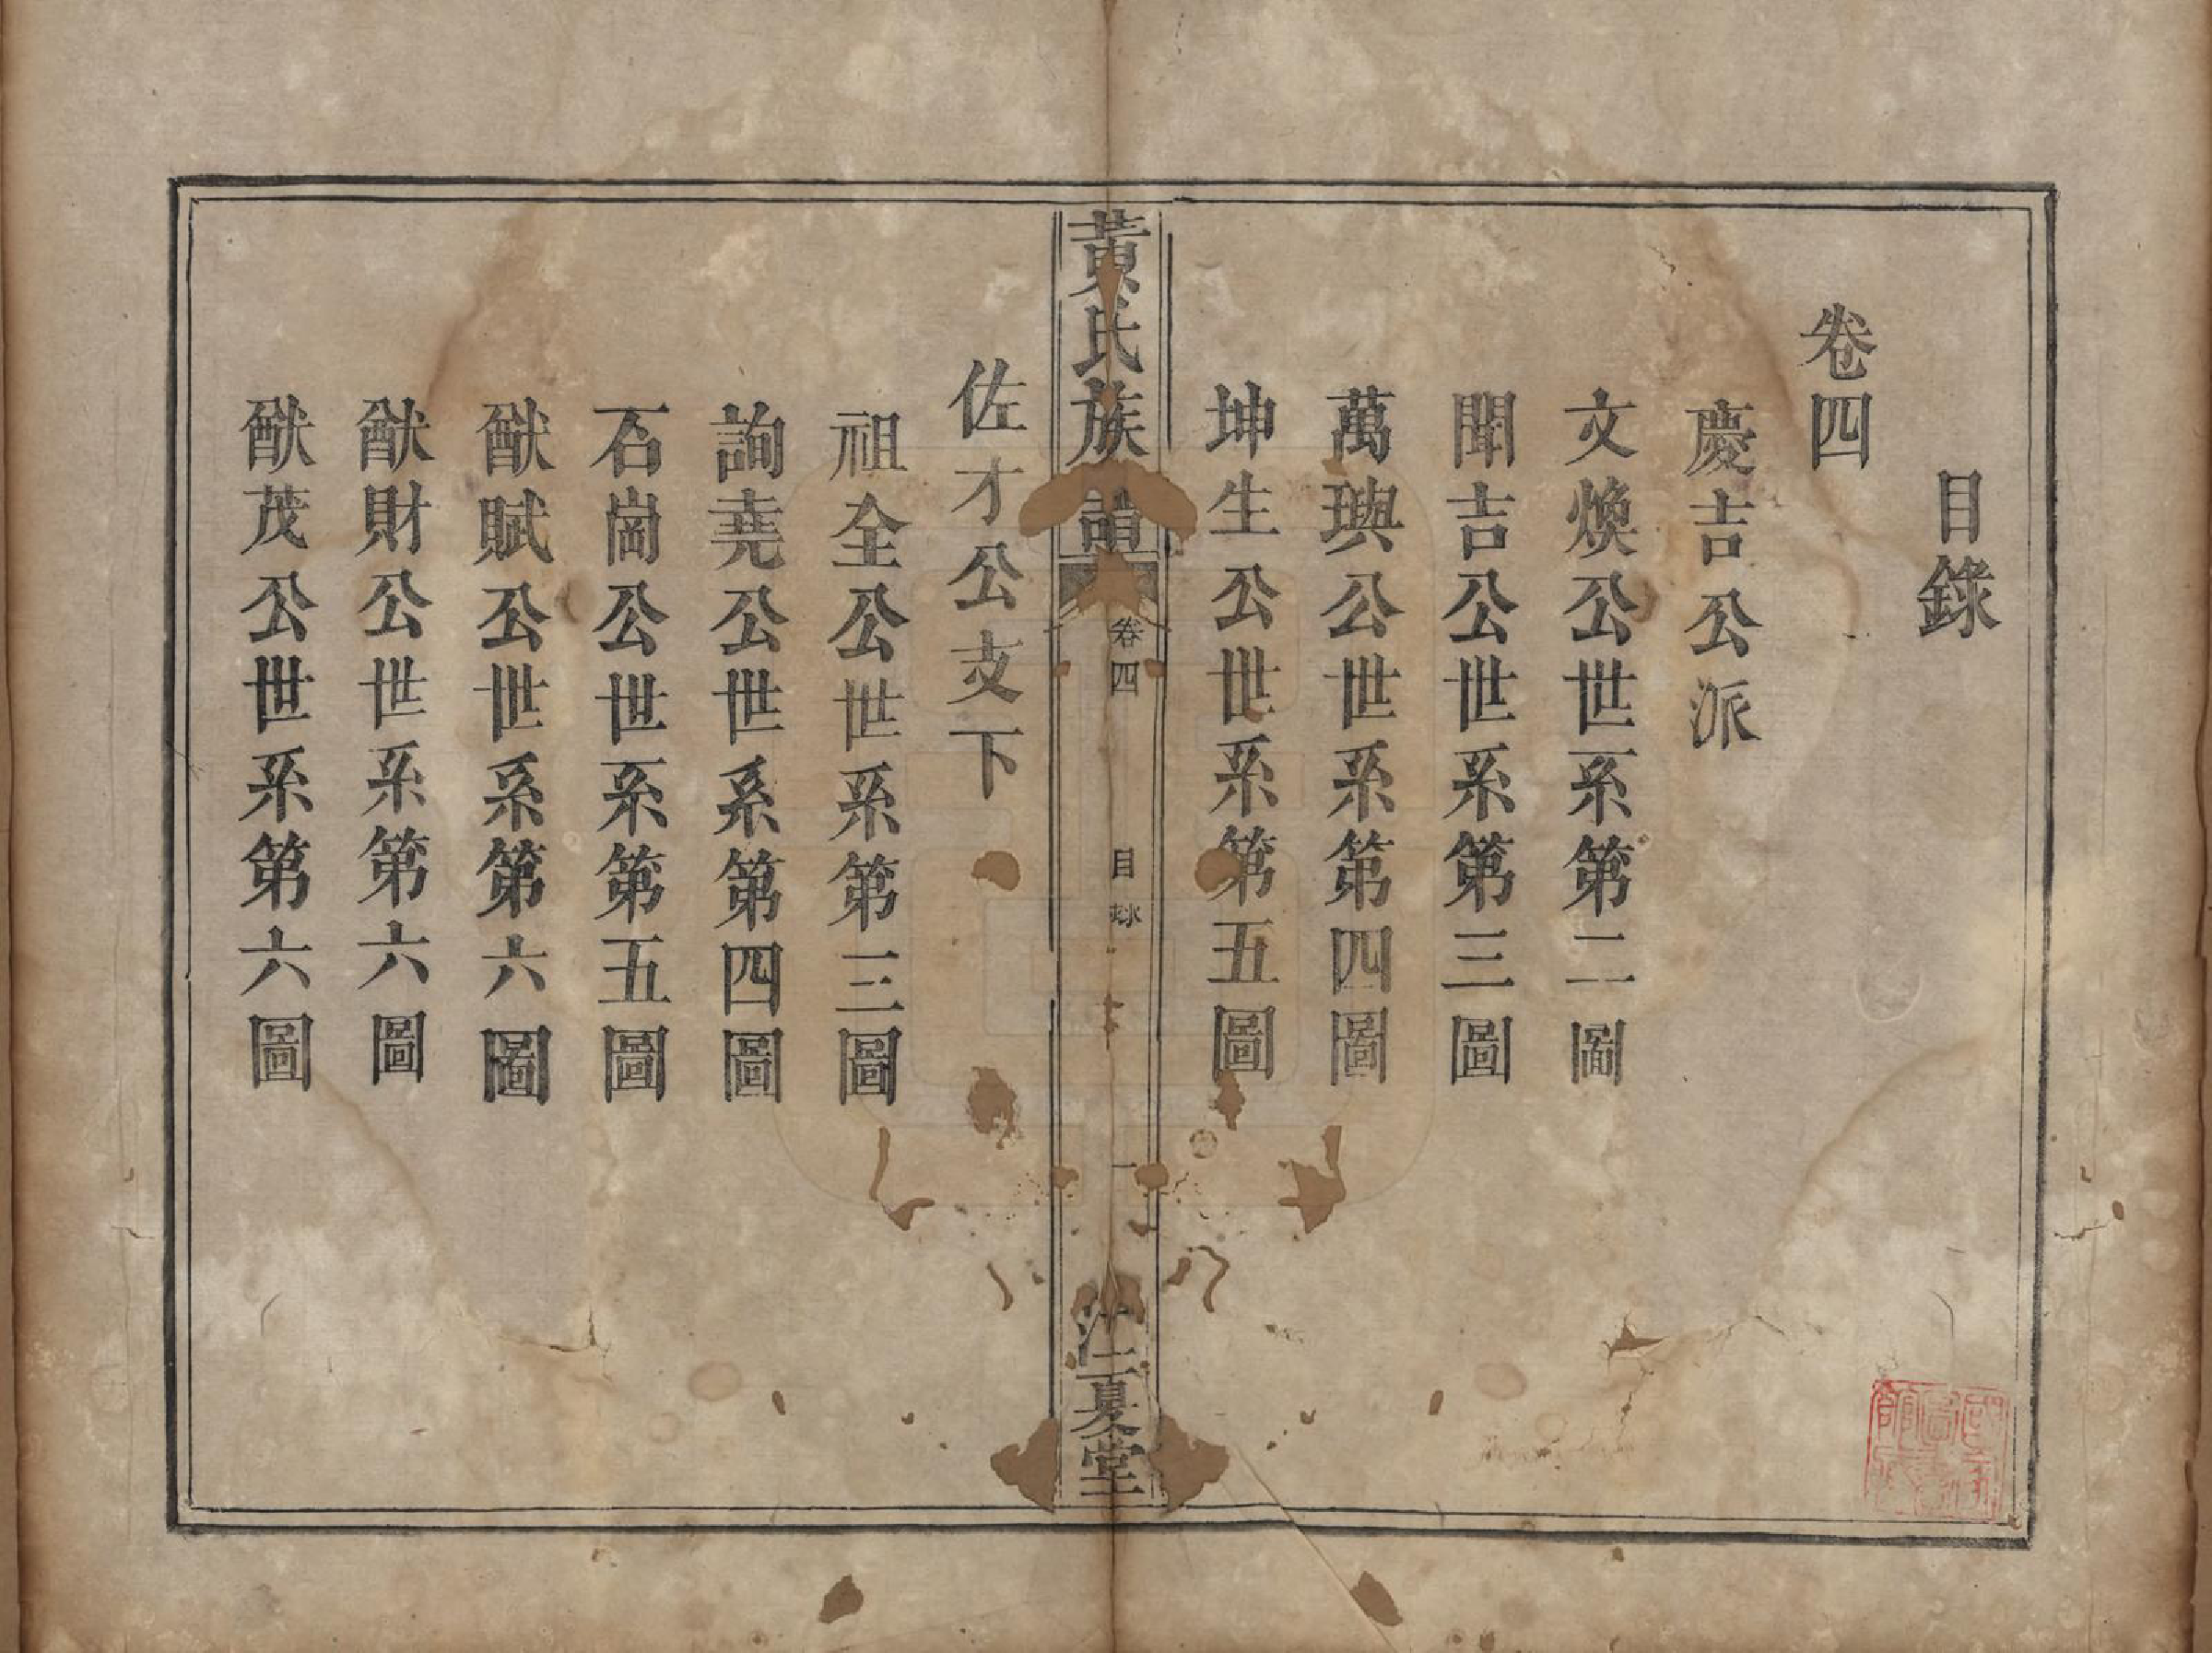 目錄
卷四
慶吉公派
文煥公世系第二圖
聞吉公世系第三圖
萬璵公世系第四圖
坤生公世系第五圖
黃氏族譜
卷四
目錄
一
江夏堂
佐才公支下
祖全公世系第三圖
詢堯公世系第四圖
石崗公世系第五圖
猷賦公世系第六圖
猷財公世系第六圖
猷茂公世系第六圖